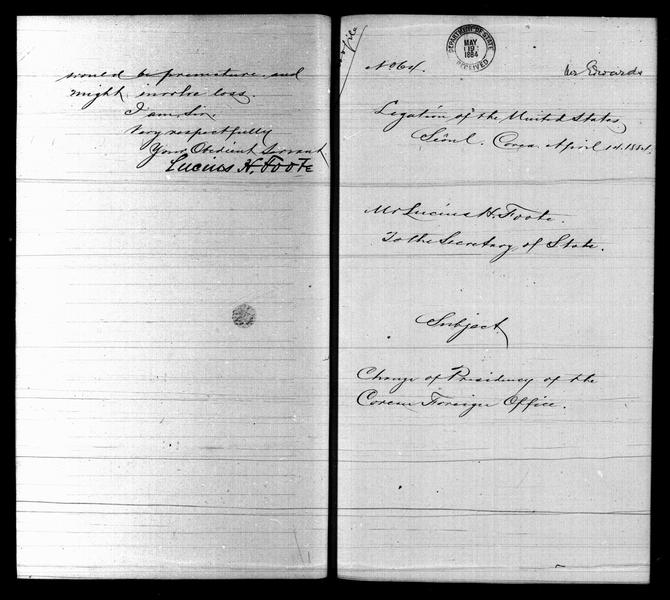 would be premature, and
might involve loss.
I am, Sir,
Very respectfully
Your Obedient Servant
Lucius H. Foote
DEPARTMENT OF STATE
MAY
19
1884
RECEIVED
No 64.
Mr Edwards
Legation of the United States,
Seoul. Corea. April 1st. 1884.
Mr Lucius H. Foote.
To the Secretary of State.
Subject
Change of Presidency of the
Corean Foreign Office.